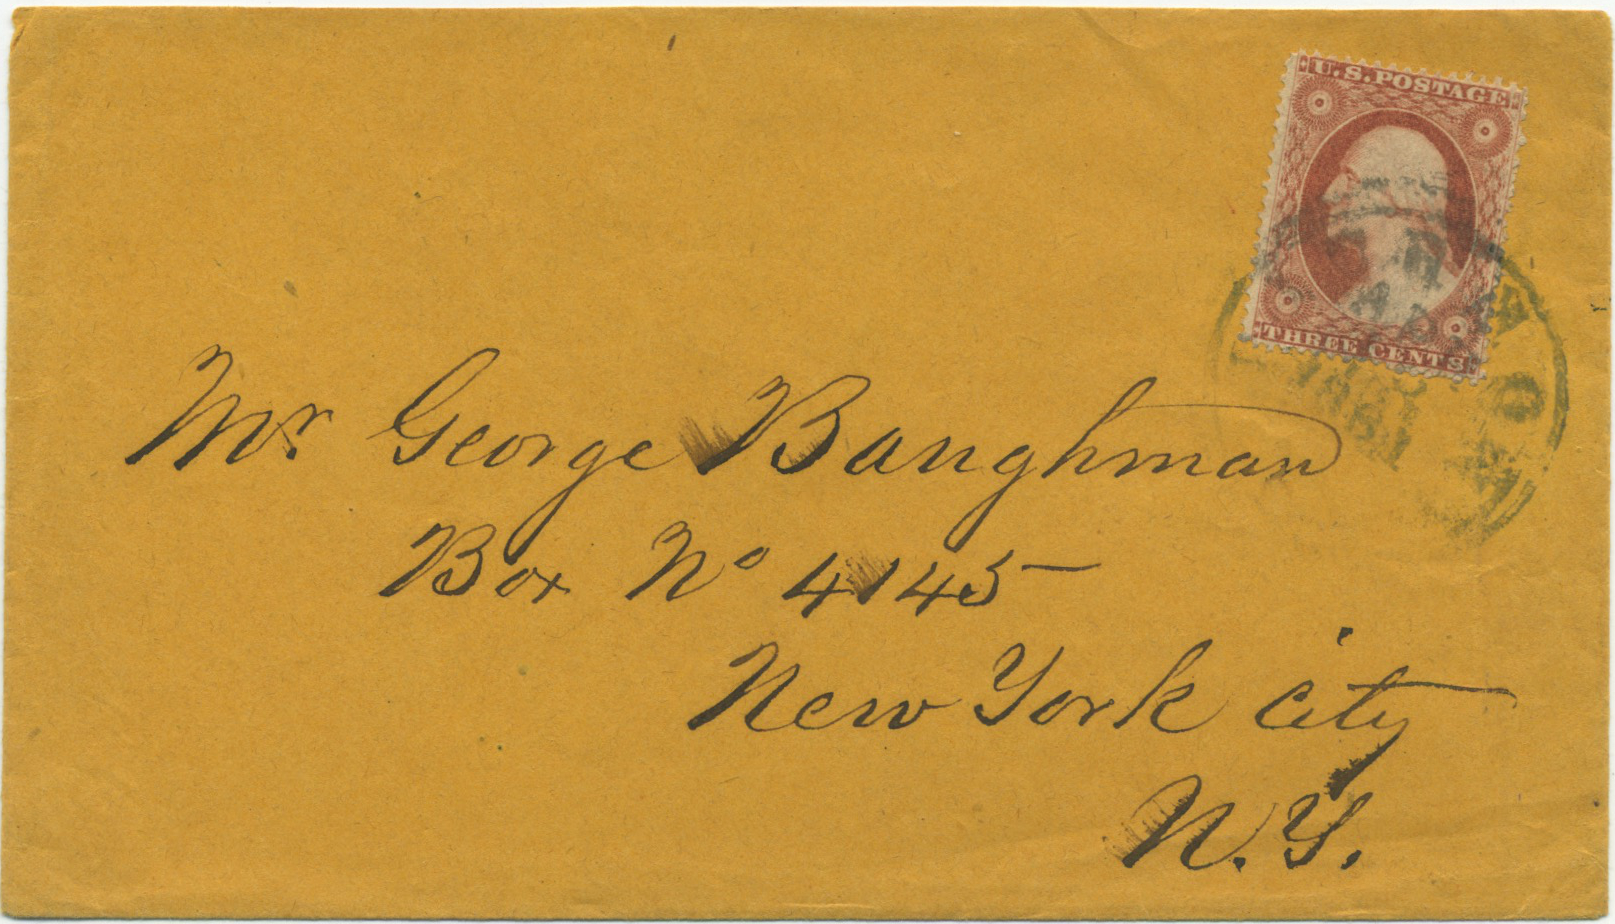 U.S. POSTAGE
THREE CENTS
1861
MO
Mr George Baughman
Box No 4145
New York City
N.Y.